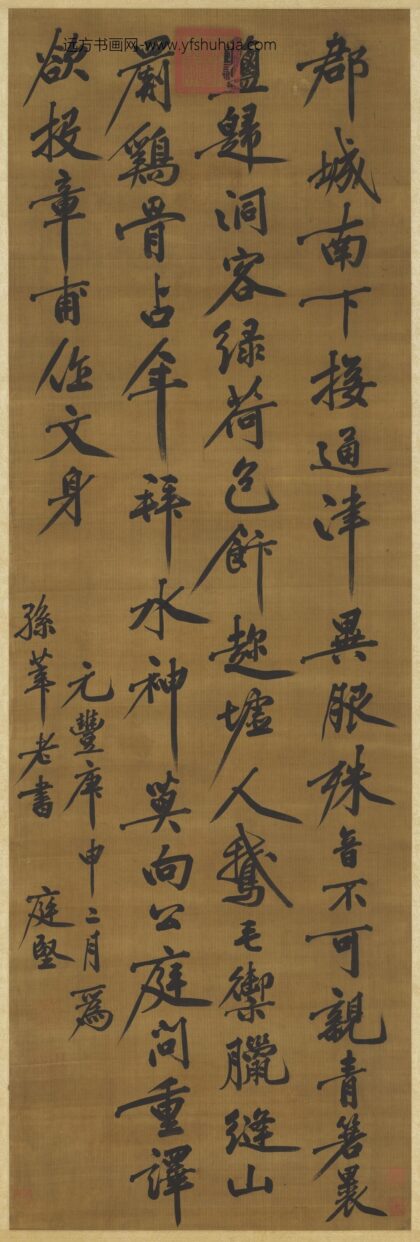 远方书画网-www.yfshuhua.com
郡城南下接通津異服殊音不可親青箬裹
鹽歸洞客緑荷包飰趂墟人鵝毛禦臘縫山
罽鷄骨占年拜水神莫向公庭問重譯
欲投章甫作文身
元豐庚申二月爲
孫莘老書 庭堅